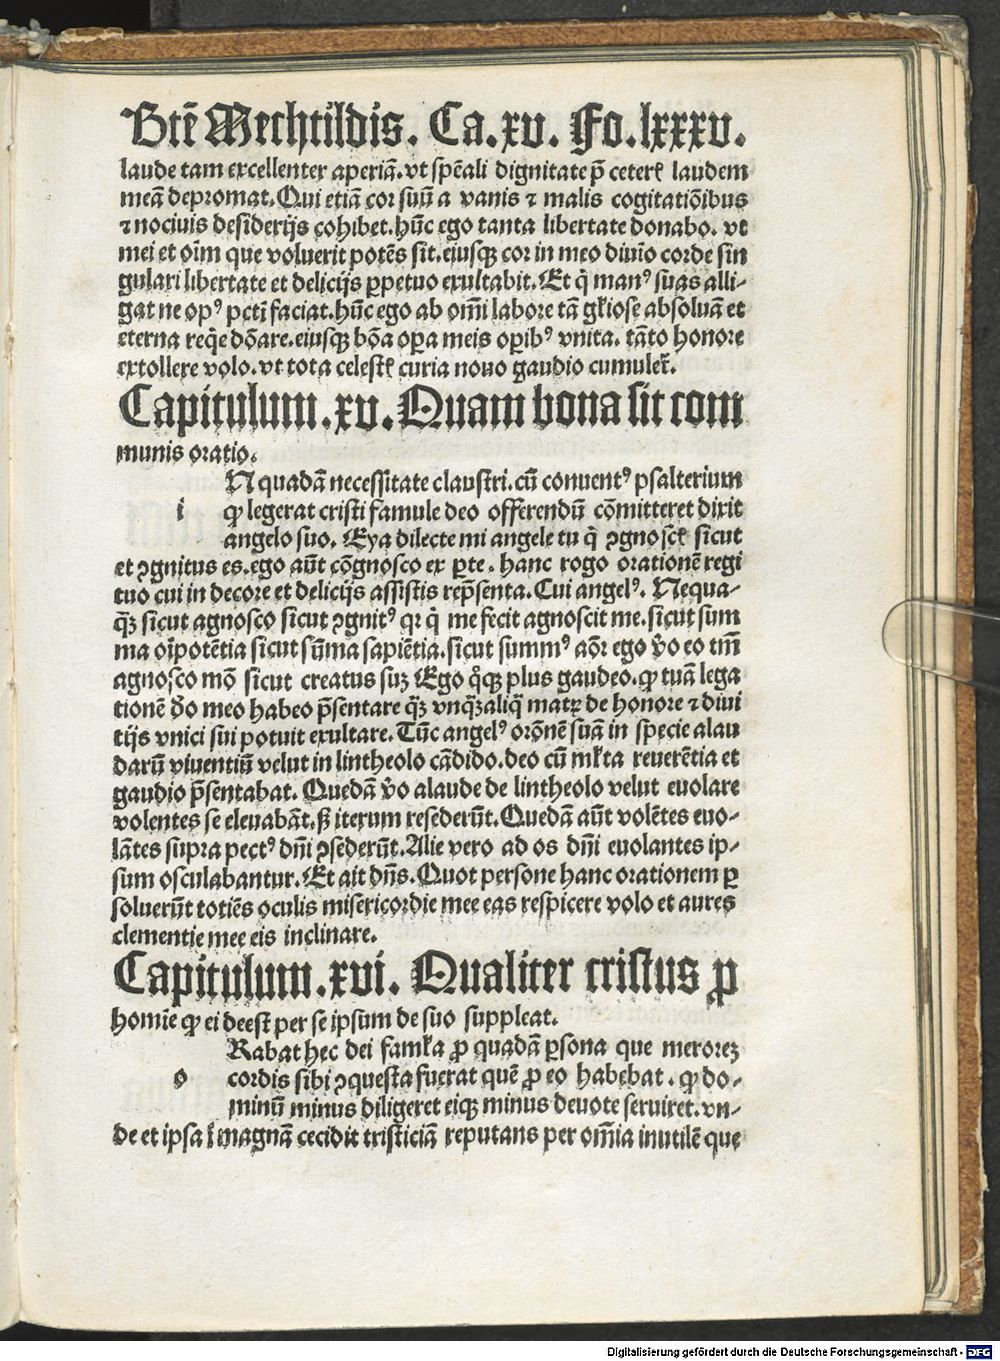 Btē Mechtildis. Ca. xv. Fo. lxxxv.
laude tam excellenter aperiā. vt spēali dignitate p̄ ceterꝭ laudem
meā depromat. Qui etiā cor suū a vanis ⁊ malis cogitatiōibus
⁊ nociuis desiderijs cohibet. hūc ego tanta libertate donabo. vt
mei et oīm que voluerit potēs sit. eiusqꝫ cor in meo diuīo corde sin
gulari libertate et delicijs ꝑpetuo exultabit. Et q̄ manꝰ suas alli-
gat ne opꝰ pctī faciat. hūc ego ab om̄i labore tā gl̄iose absoluā et
eterna req̄e dōare. eiusqꝫ bōa oꝑa meis oꝑibꝰ vnita. tāto honore
extollere volo. vt tota celestꝭ curia nouo gaudio cumulet̄.
Capitulum. xv. Quam bona sit com
munis oratio.
N quadā necessitate claustri. cū conuentꝰ psalterium
i ꝙ legerat cristi famule deo offerendū cōmitteret dixit
angelo suo. Eya dilecte mi angele tu q̄ ꝯgnoscꝭ sicut
et ꝯgnitus es. ego aūt cōgnosco ex ꝑte. hanc rogo orationē regi
tuo cui in decore et delicijs assistis rep̄senta. Cui angelꝰ. Nequa-
qꝫ̄ sicut agnosco sicut ꝯgnitꝰ qꝛ q̄ me fecit agnoscit me. sicut sum
ma oīpotētia sicut sūma sapiētia. sicut summꝰ aōr ego v̄o eo tm̄
agnosco mō sicut creatus suꝫ Ego qͦqꝫ plus gaudeo. ꝙ tuā lega
tionē d̄o meo habeo p̄sentare qꝫ̄ vnqꝫ̄ aliq̄ matꝛ de honore ⁊ diui
tijs vnici sui potuit exultare. Tūc angelꝰ orōnē suā in specie alau
darū viuentiū velut in lintheolo cādido. deo cū ml̄ta reuerētia et
gaudio p̄sentabat. Quedā v̄o alaude de lintheolo velut euolare
volentes se eleuabāt. sꝫ iterum resederūt. Quedā aūt volētes euo-
lātes supra pectꝰ dn̄i ꝯsederūt. Alie vero ad os dn̄i euolantes ip-
sum osculabantur. Et ait dn̄s. Quot persone hanc orationem ꝑ
soluerūt totiēs oculis misericordie mee eas respicere volo et aures
clementie mee eis inclinare.
Capitulum. xvi. Qualiter cristus ꝓ
homīe ꝙ ei deest per se ipsum de suo suppleat.
Rabat hec dei faml̄a ꝓ quadā ꝑsona que meroreꝫ
o cordis sibi ꝯquesta fuerat quē ꝓ eo habebat. ꝙ do-
minū minus diligeret eiqꝫ minus deuote seruiret. vn-
de et ipsa ī magnā cecidit tristiciā reputans per om̄ia inutilē que
Digitalisierung gefördert durch die Deutsche Forschungsgemeinschaft - DFG